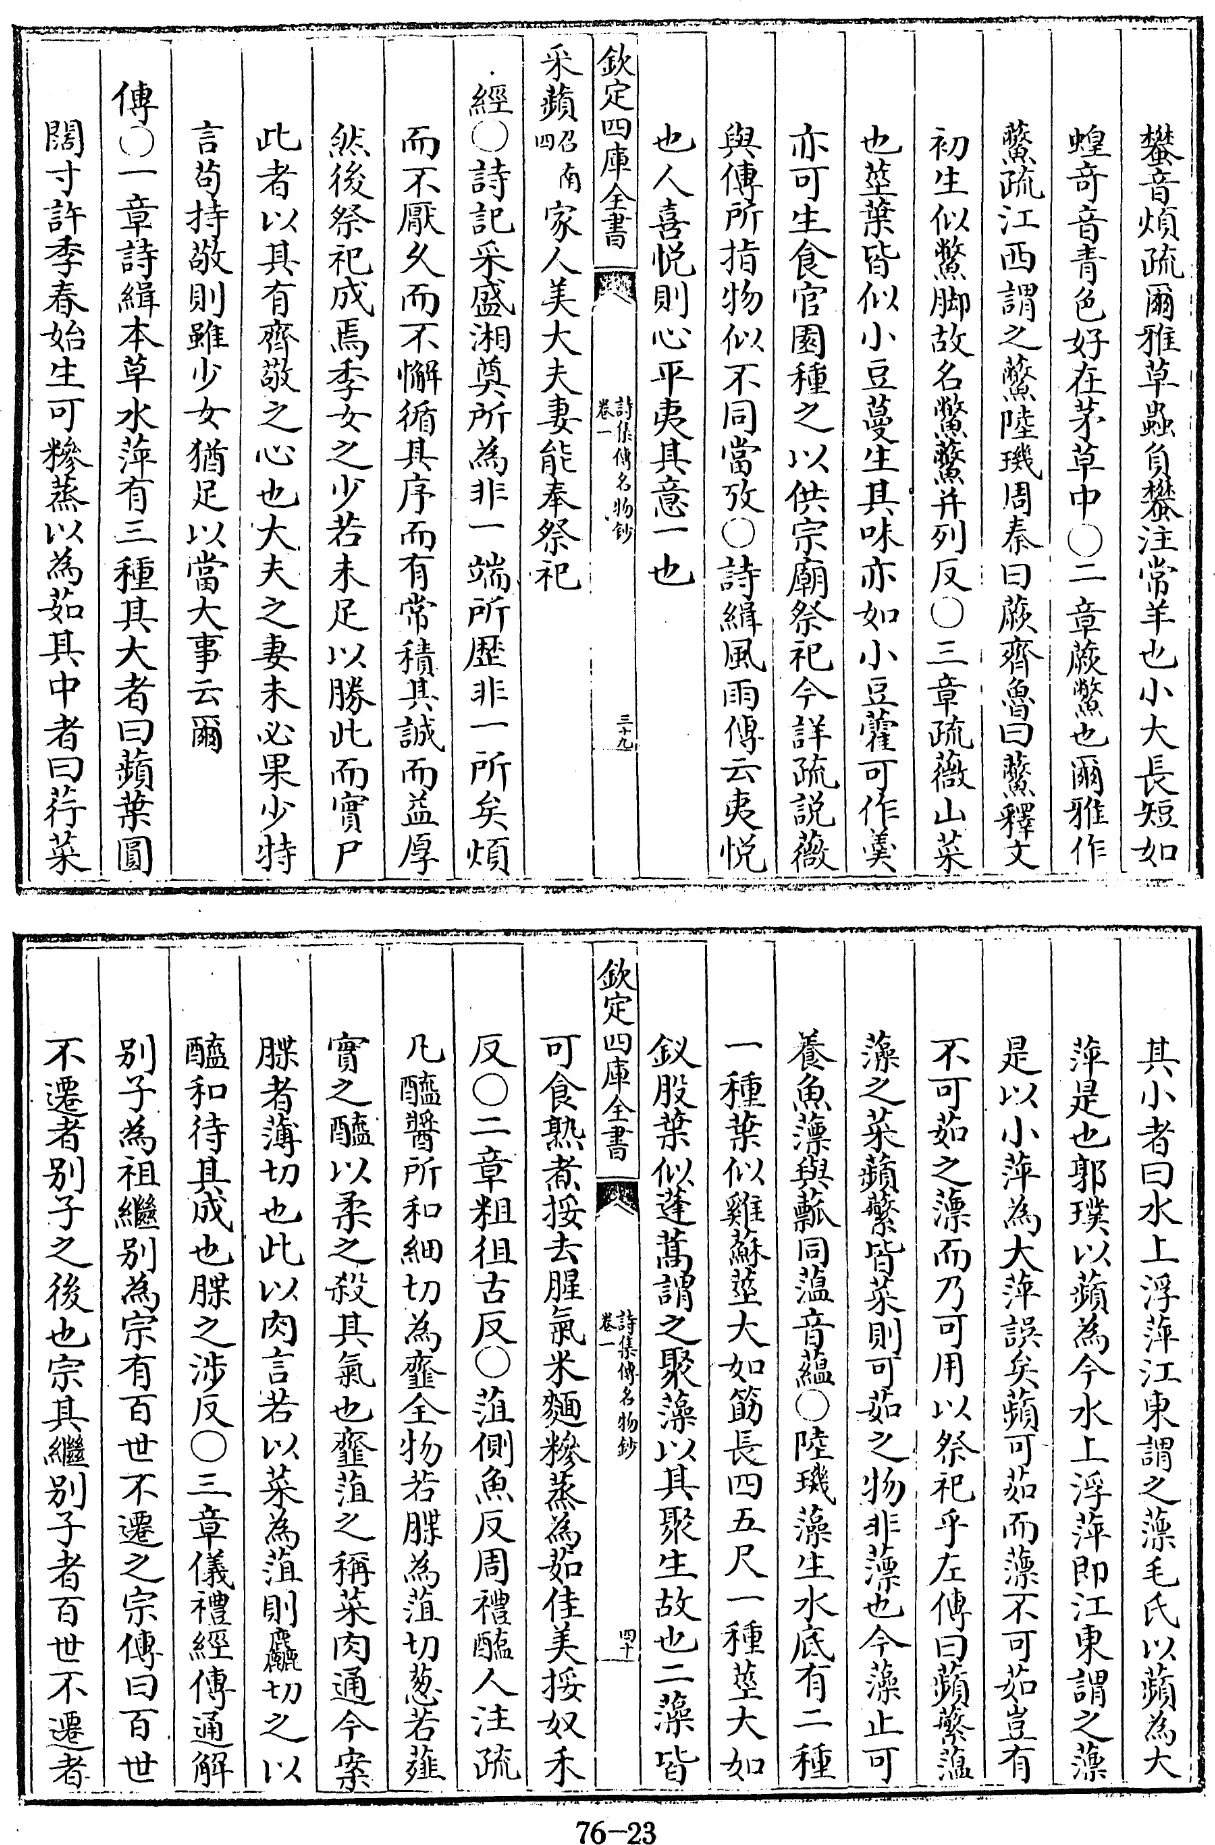 蠜音煩疏爾雅草蟲負蠜注常羊也小大長短如
蝗竒音青色好在茅草中○二章蕨鱉也爾雅作
虌疏江西謂之虌陸璣周秦曰蕨齊魯曰虌釋文
初生似鱉脚故名鱉虌并列反○三章疏薇山菜
也莖葉皆似小豆蔓生其味亦如小豆藿可作羮
亦可生食官園種之以供宗廟祭祀今詳疏説薇
與傳所指物似不同當攷○詩緝風雨傳云夷悦
也人喜悦則心平夷其意一也
欽定四庫全書
詩集傳名物鈔
卷一
三十九
采蘋召南四家人美大夫妻能奉祭祀
經○詩記采盛湘奠所為非一端所歴非一所矣煩
而不厭久而不懈循其序而有常積其誠而益厚
然後祭祀成焉季女之少若未足以勝此而實尸
此者以其有齊敬之心也大夫之妻未必果少特
言苟持敬則雖少女猶足以當大事云爾
傳○一章詩緝本草水萍有三種其大者曰蘋葉圓
闊寸許季春始生可糝蒸以為茹其中者曰荇菜
其小者曰水上浮萍江東謂之薸毛氏以蘋為大
萍是也郭璞以蘋為今水上浮萍即江東謂之薸
是以小萍為大萍誤矣蘋可茹而薸不可茹豈有
不可茹之薸而乃可用以祭祀乎左傳曰蘋蘩薀
藻之菜蘋蘩皆菜則可茹之物非薸也今藻止可
養魚薸與瓢同薀音藴○陸璣藻生水底有二種
一種葉似雞蘇莖大如筯長四五尺一種莖大如
釵股葉似蓬蒿謂之聚藻以其聚生故也二藻皆
欽定四庫全書
詩集傳名物鈔
卷一
四十
可食熟煮挼去腥氣米麵糝蒸為茹佳美挼奴禾
反○二章粗徂古反○菹側魚反周禮醢人注疏
凡醯醬所和細切為虀全物若䐑為菹切葱若薤
實之醯以柔之殺其氣也虀菹之稱菜肉通今案
䐑者薄切也此以肉言若以菜為菹則麤切之以
醯和待其成也䐑之涉反○三章儀禮經傳通解
别子為祖繼别為宗有百世不遷之宗傳曰百世
不遷者别子之後也宗其繼别子者百世不遷者
76-23